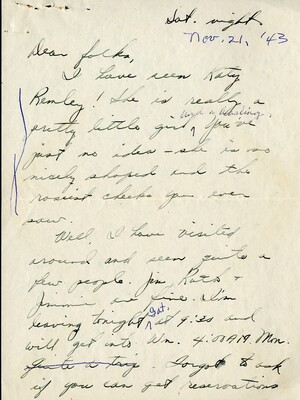 Sat. night
Nov. 21, '43
Dear folks,
I have seen Katy
Remley! She is really a
pretty little girl, You've
just no idea - she is so
nicely shaped and the
rosiest cheeks you ever
saw.
Well, I have visited
around and seen quite a
few people. Jim, Ruth +
Jimmie are fine. I'm
leaving tonight Sat. at 9:30 and
will get into Wn. 4:00 A.M. Mon.
Quite a trip. Forgot to ask
if you can get reservations